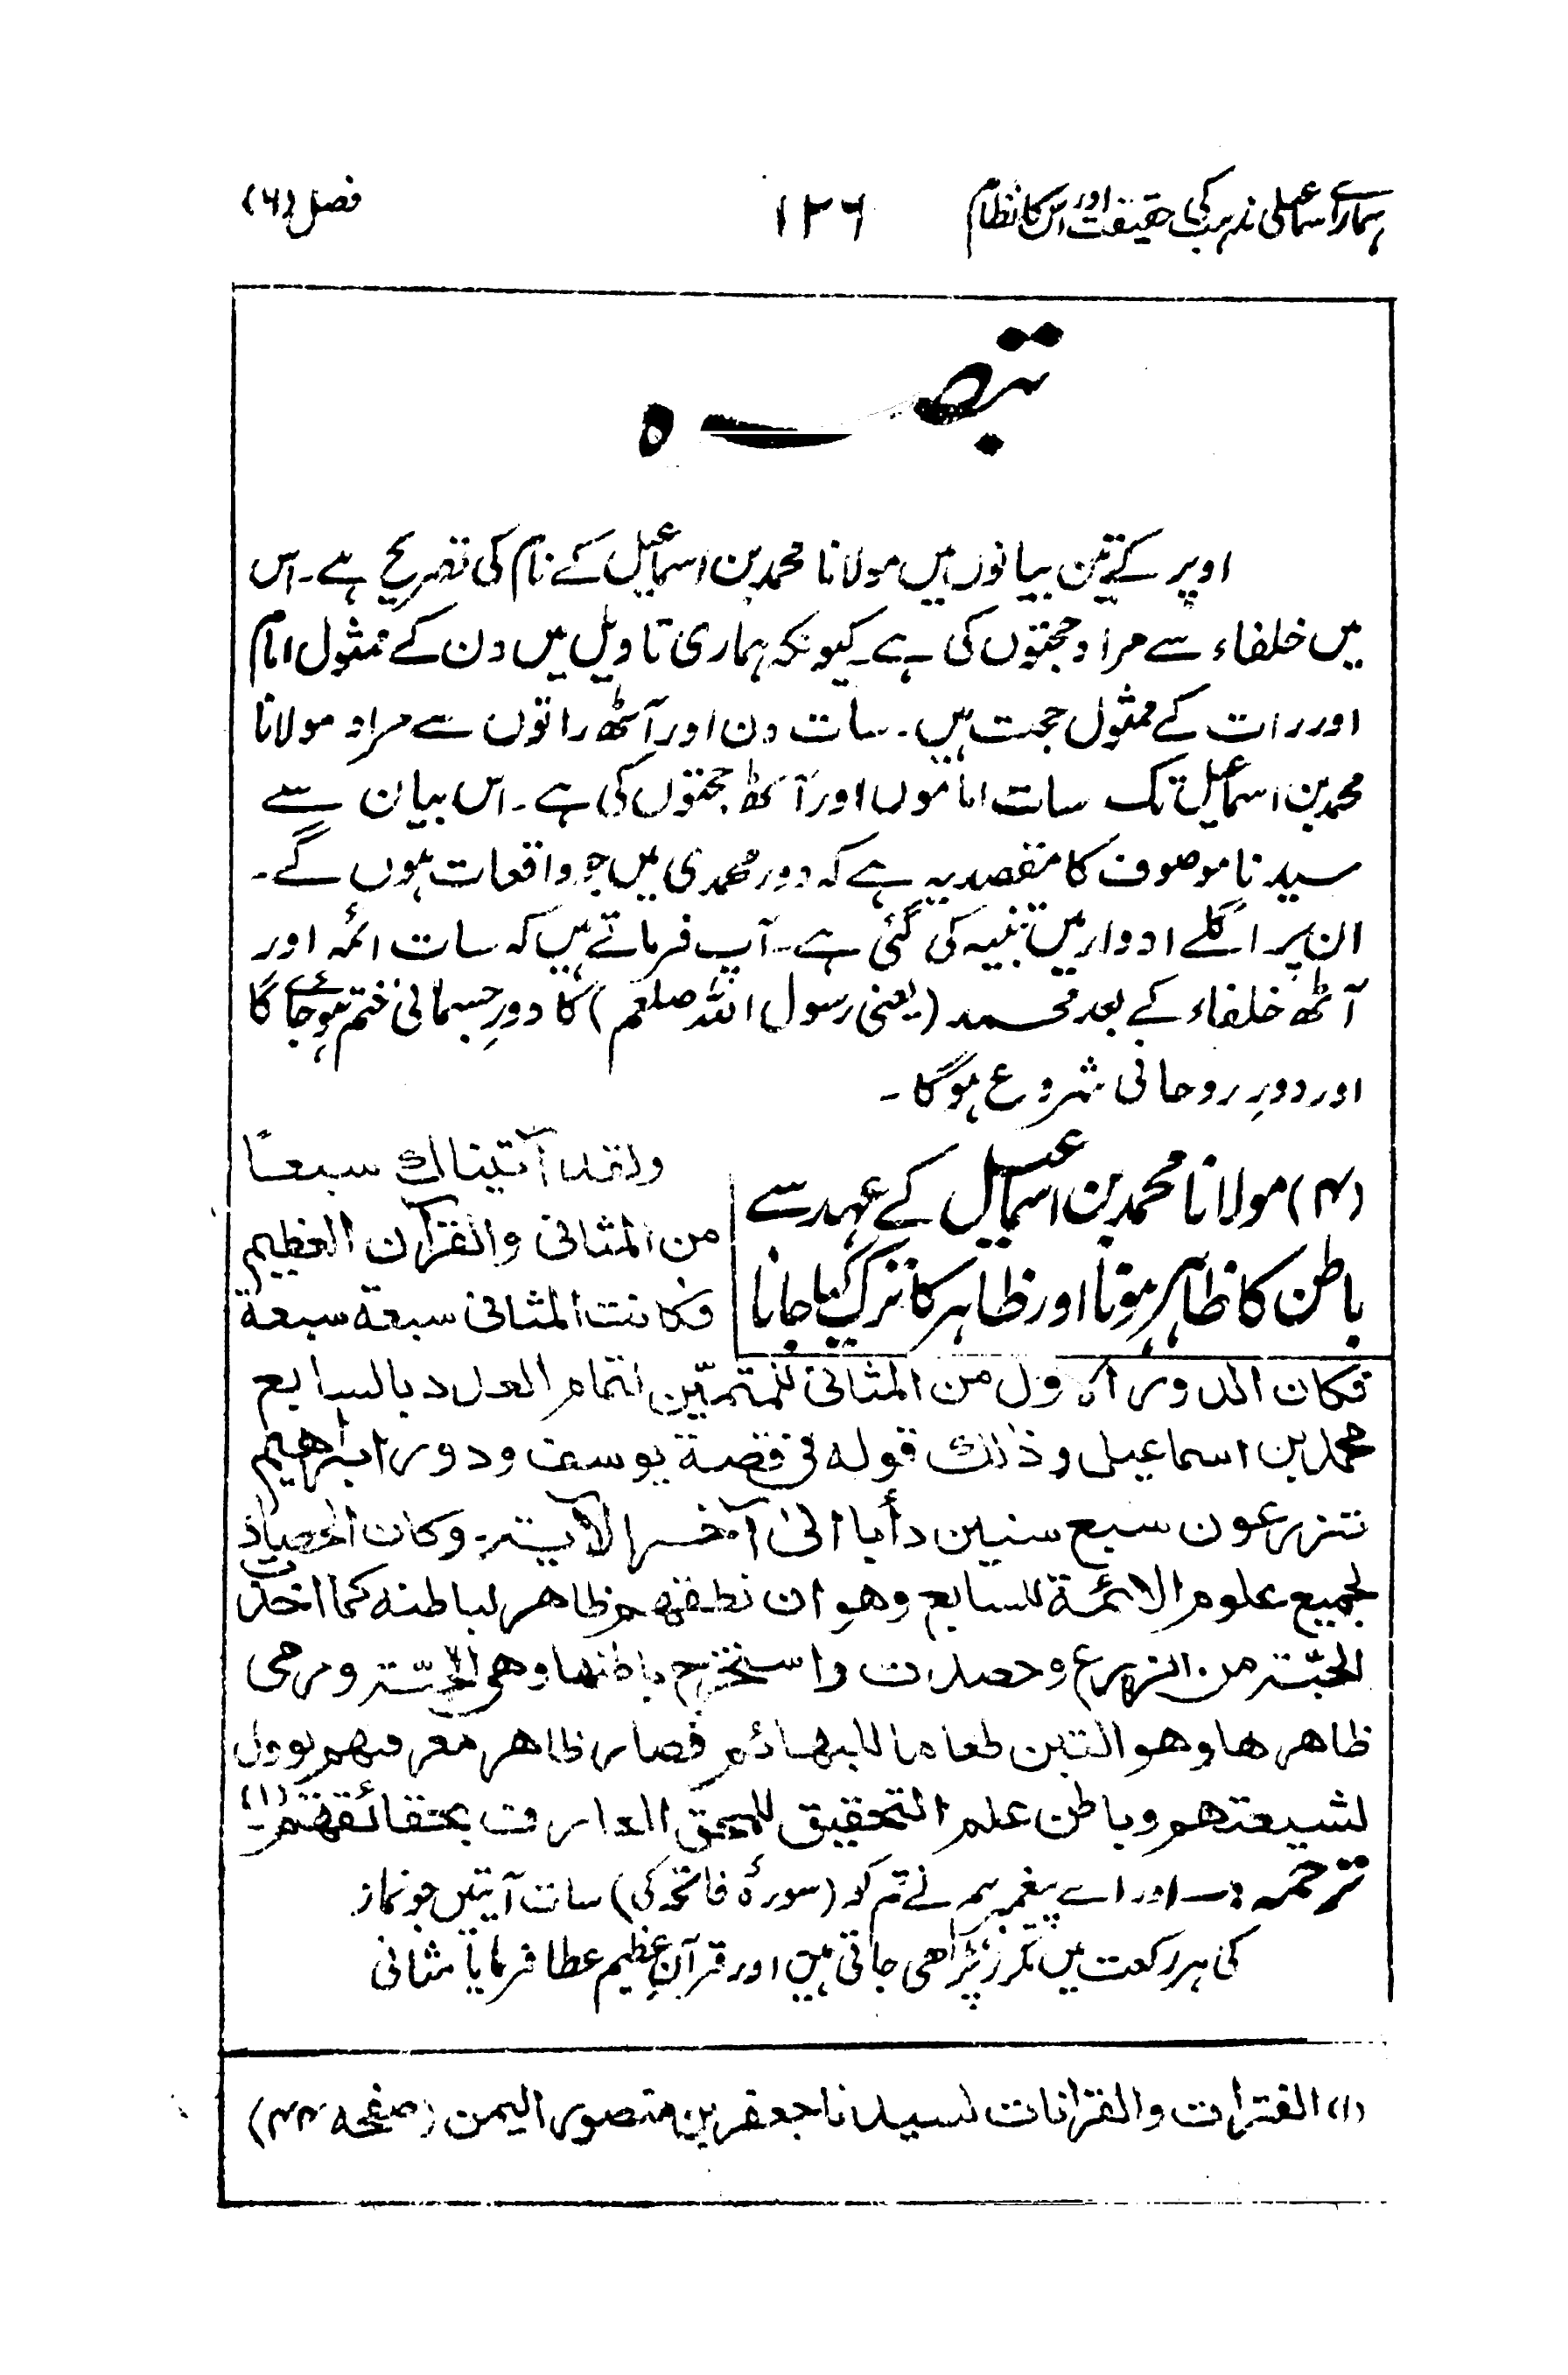 ہمارے اسماعیلی مذہب کی حقیقت اور اس کا نظام ۱۲۶ فصل (۶)
تبصرہ
اوپر کے تین بیانوں میں مولانا محمد بن اسماعیل کے نام کی تصریح ہے۔ اس
میں خلفاء سے مراد حجتوں کی ہے۔ کیونکہ ہماری تاویل میں دن کے ممثول امام
اور رات کے ممثول حجت ہیں۔ سات دن اور آٹھ راتوں سے مراد مولانا
محمد بن اسماعیل تک سات اماموں اور آٹھ حجتوں کی ہے۔ اس بیان سے
سیدنا موصوف کا مقصد یہ ہے کہ دور محمدی میں جو واقعات ہوں گے۔
ان پر اگلے ادوار میں تنبیہ کی گئی ہے۔ آپ فرماتے ہیں کہ سات ائمہ اور
آٹھ خلفاء کے بعد محمد (یعنی رسول اللہ صلعم) کا دورِ جسمانی ختم ہو جائے گا
اور دورِ روحانی شروع ہوگا۔
(۴) مولانا محمد بن اسماعیل کے عہد سے
باطن کا ظاہر ہونا اور ظاہر کا ترک کیا جانا
ولقد آتیناك سبعًا
من المثانی والقرآن العظیم
فكانت المثانی سبعة سبعة
فكان الدور الاول من المثانی للمتمّین لتمام العدد بالسابع
محمد بن اسماعیل وذلك قوله فی قصة یوسف ودور ابراهیم
تزرعون سبع سنین دأبا الیٰ آخر الآیة۔ وكان الحصاد
لجمیع علوم الائمة للسابع وهو ان نطقهم ظاهر لباطنه كما اخذت
الحبّة من الزرع وحصدت واستخرج باطنها وهی الحبّة ورمی
ظاهرها وهو التبن طعاما للبهائم فصار ظاهر معرفتهم
لشیعتهم وباطن علم التحقیق للمحق العارف بحقائقهم۔ (۱)
ترجمہ :۔ اور اے پیغمبر ہم نے تم کو (سورۂ فاتحہ کی) سات آیتیں جو نماز
کی ہر رکعت میں مکرر پڑھی جاتی ہیں اور قرآنِ عظیم عطا فرمایا مثانی
(۱) الفترات والقرانات لسیدنا جعفر بن منصور الیمن (صفحہ ۴۴)